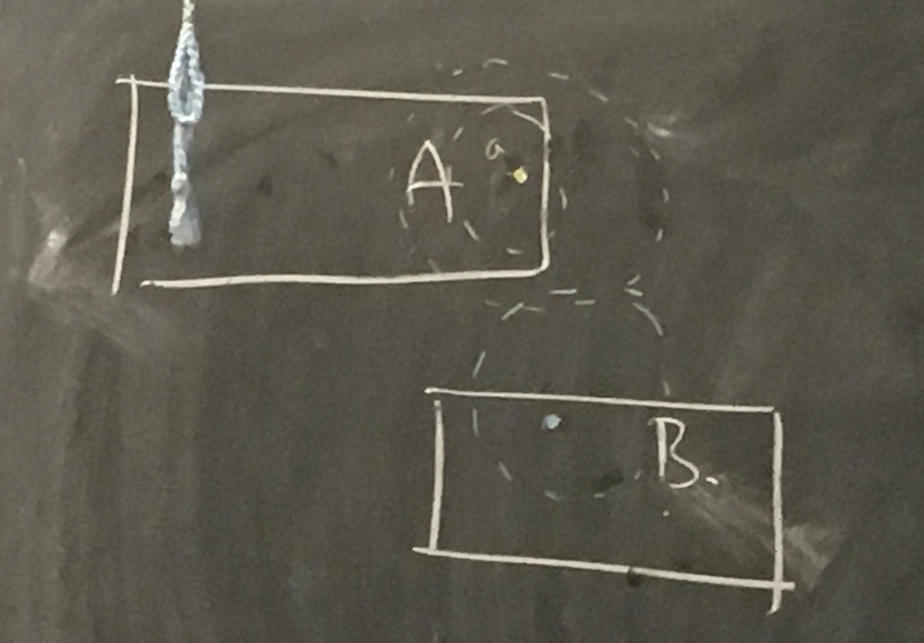 a
A
B.